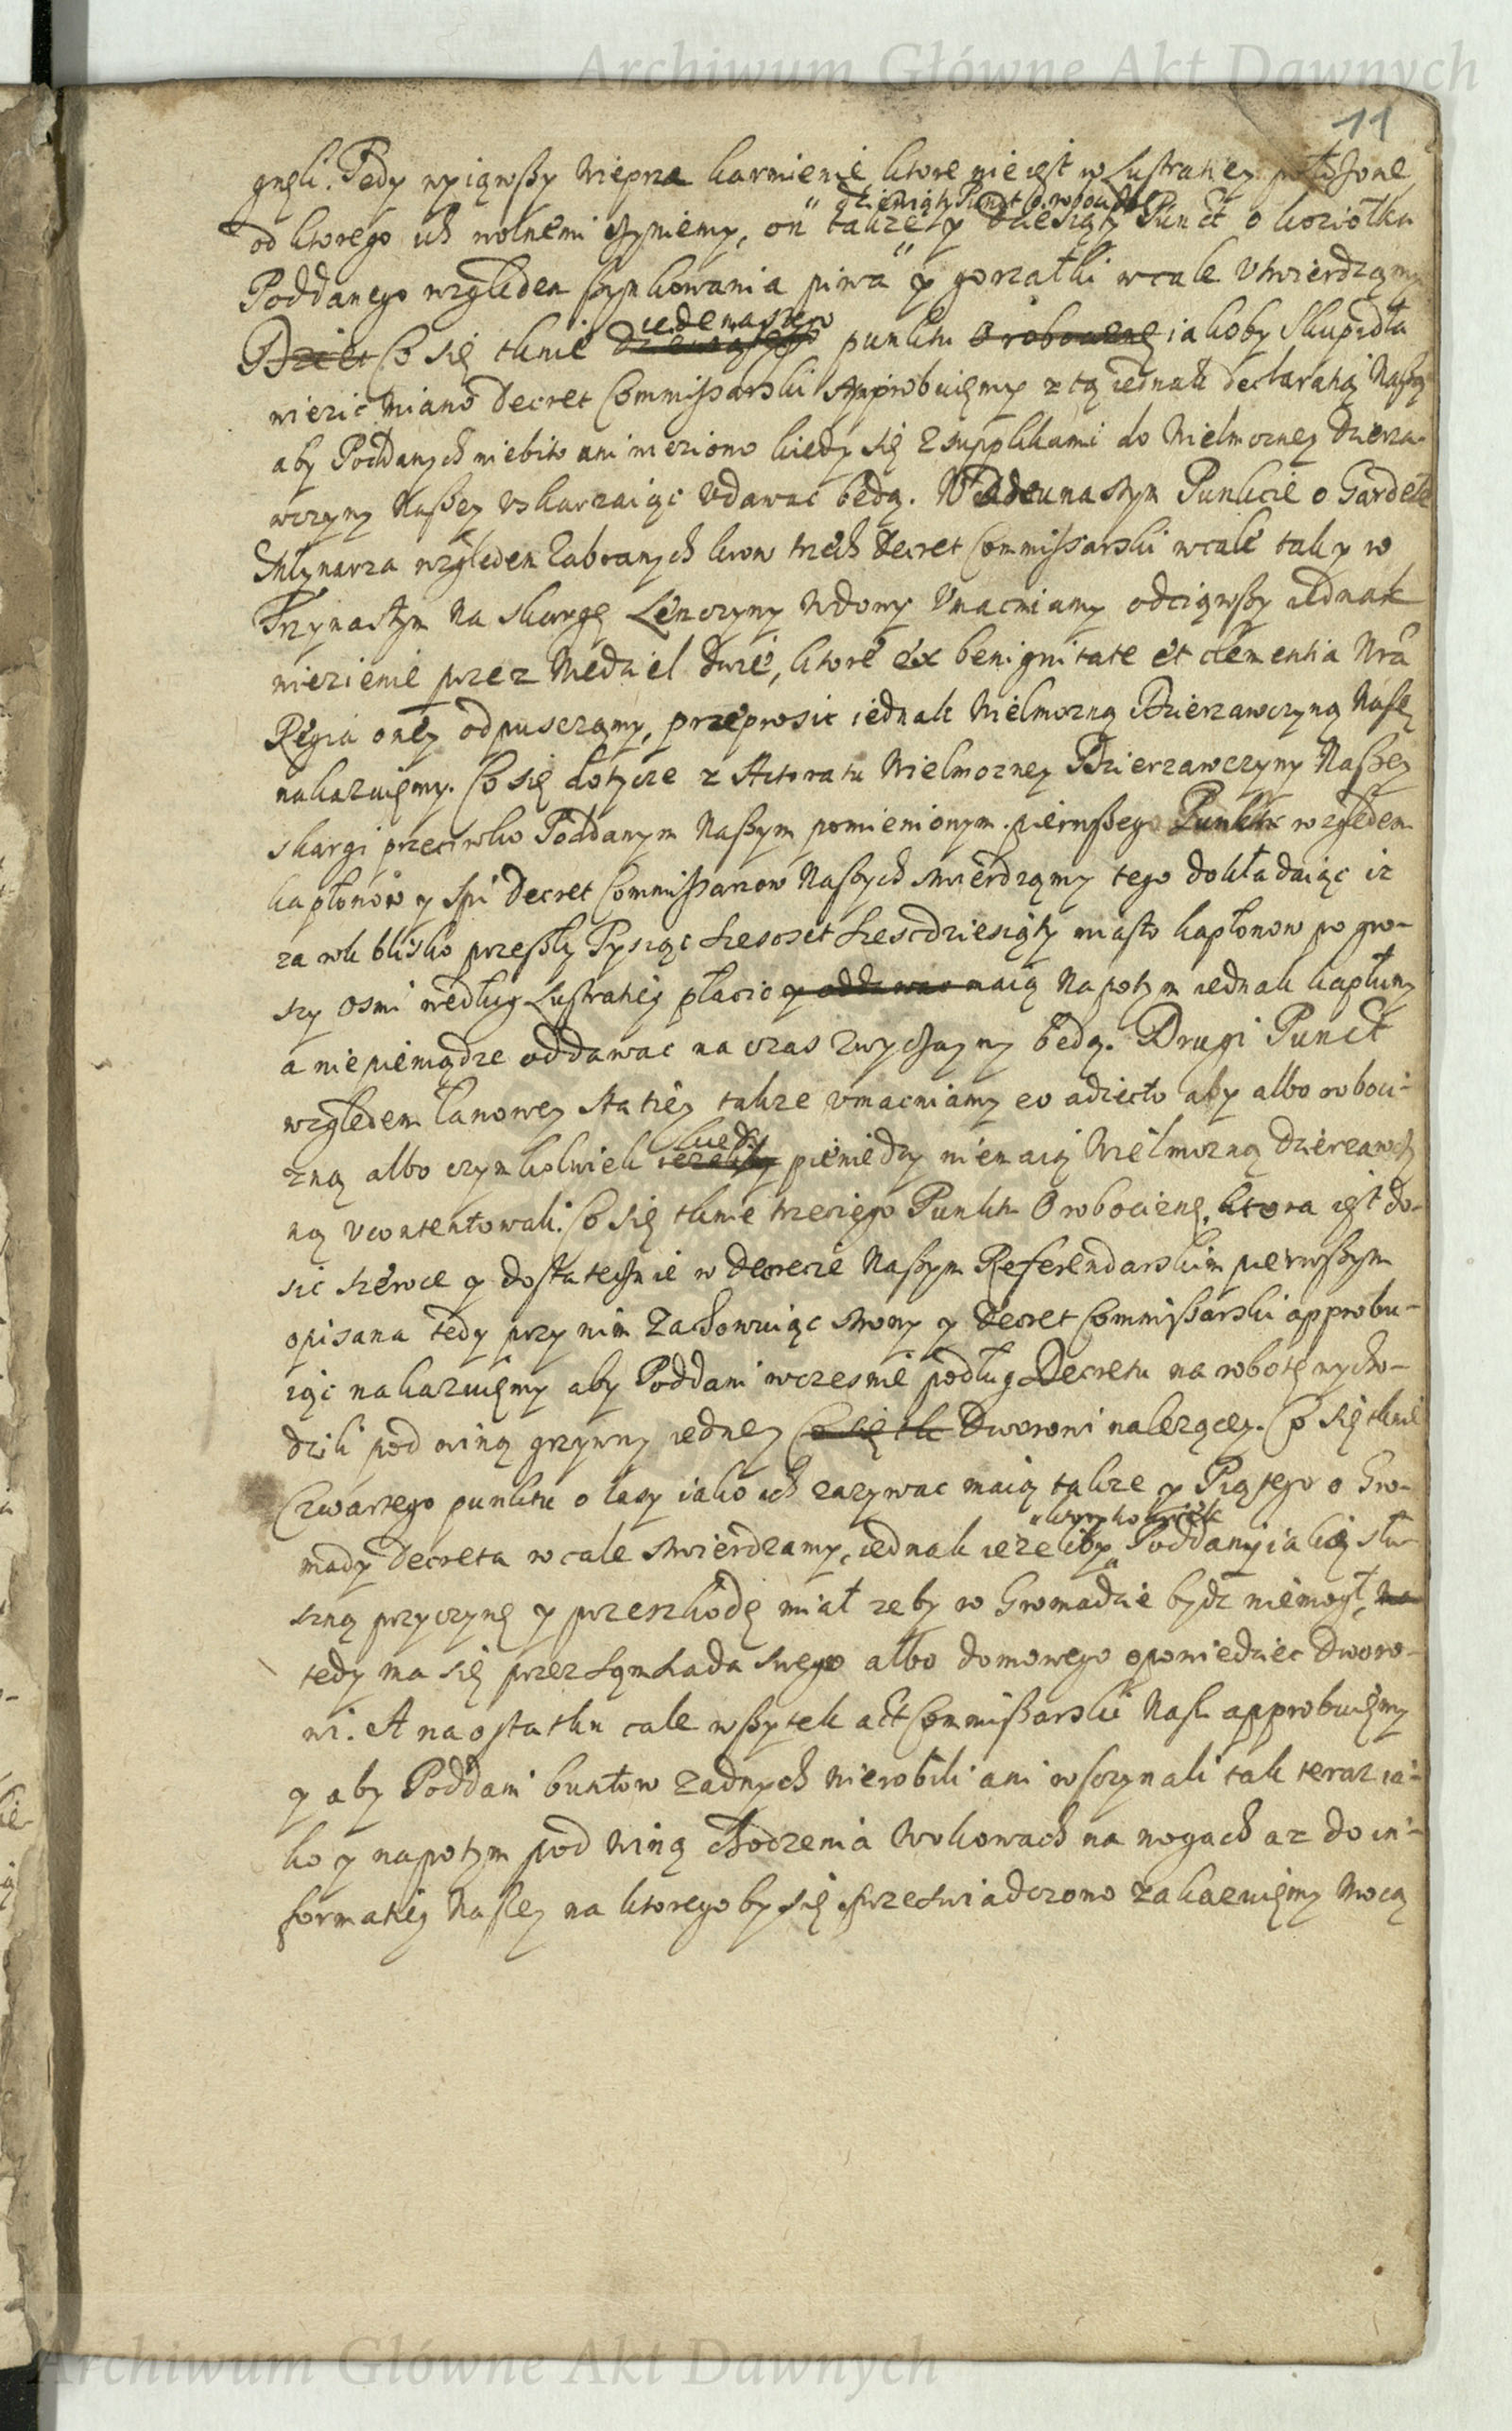 Archiwum Główne Akt Dawnych
11
gneli. Tedy wyiąwszy Wieprza karmienie ktore nie iest w Lustratiey położone
dziewiąty Punct o robocizne
od ktorego ich wolnemi czyniemy, on takze y dziesiąty Punct o koziołka
Poddanego względem szynkowania piwa y gorzałki wcale Utwierdzamy
iedenastego
Dzies Co się tknie dziewiątego punktu O robociznę iakoby Skupidła
wiezic miano Decret Commissarski Approbuięmy z tą iednak declaratią Naszą
aby Poddanych niebito ani wieziono kiedy się z supplikami do Wielmozney dzierza-
wczyny Naszey uskarzaiąc Udawac będą. W dwunastym Punkcie o Gardele
Młynarza względem Zabranych krow trzech Decret Commissarski wcale tak y w
Trzynastym Na skargę Lenczyny Wdowy Umacniamy odciąwszy iednak
wiezienie przez Niedziel dwie, ktore ex benignitate et clementia Nra
Regia oney odpuszczamy, przeprosic iednak Wielmozną Dzierzawczyną Naszę
nakazuięmy. Co się dotycze z Actoratu Wielmozney Dzierzawczyny Naszey
skargi przeciwko Poddanym Naszym pomienionym. pierwszego Punktu względem
kapłonow y Spi Decret Commissarzow Naszych utwierdzamy tego dokładaiąc iz
za rok blisko przeszły Tysiąc szescset szescdziesiąty miasto kapłonow po gro-
szy osmi według Lustratiey płacic y oddawac maią Napotym iednak kapłuny
a niepieniądze oddawac na czas zwyczayny będą. Drugi Punct
względem łanowey Statiey takze umacniamy eo adiecto aby albo roboci-
kiedy
zną albo czymkolwiek iezeliby pieniedzy niemaią Wielmozną dzierzawczy
ną ucontentowali. Co się tknie trzeciego Punktu O robociznę, ktora iest do-
sic szeroce y dostatecznie w Decrecie Naszym Referendarskim pierwszym
opisana tedy przy nim Zachowuiąc strony y Decret Commissarski approbu-
iąc nakazuięmy aby Poddani wczesnie podług Decretu na robotę wycho-
dzili pod winą grzywny iedney Co się tk Dworowi nalezącey. Co się tknie
Czwartego punktu o lasy iako ich zazywac maią takze y Piątego o Gro-
ktorykolwiek
mady Decreta wcale utwierdzamy, iednak iezeliby Poddany iakię słu-
szną przyczynę y przeszkodę miał zeby w Gromadzie bydz niemogł, ma
tedy ma się przez Sąmsiada swego albo domowego opowiedziec Dworo-
wi. A na ostatku cale wszytek act Commissarski Nasz approbuięmy
y aby Poddani buntow zadnych nierobili ani wsczynali tak teraz ia-
ko y napotym pod winą chodzenia Wokowach na nogach az do in-
formatiey Naszey na ktorego by się przeswiadczono zakazuięmy Mocą
Archiwum Główne Akt Dawnych